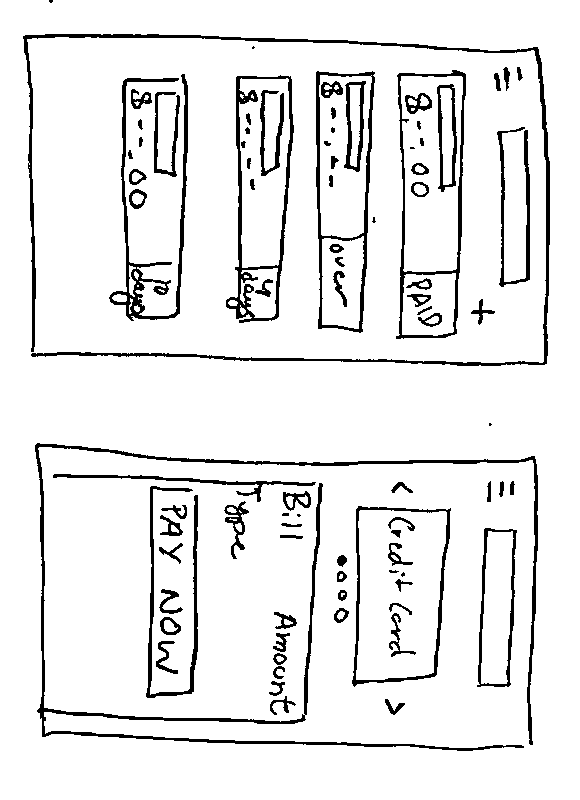 +
$--.00 PAID
$--.-- over
$--.-- 4 days
$--.00 10 days
< Credit Card >
Bill Amount
Type
PAY NOW